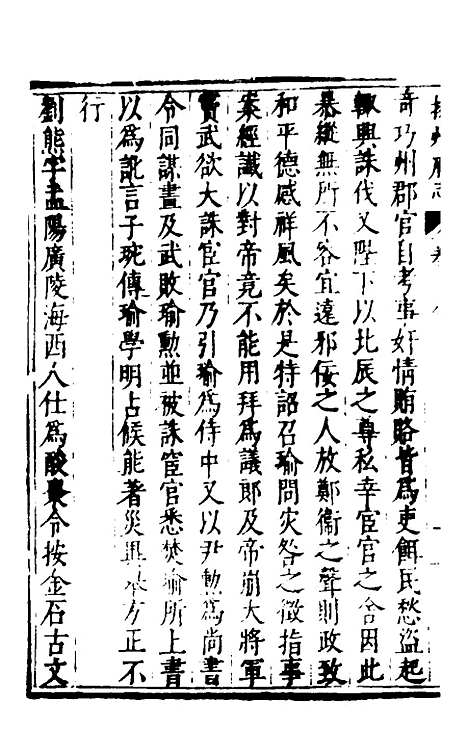 揚州府志 卷
奇巧州郡官自考事奸情賄賂皆爲吏餌民愁盜起
輒興誅伐又陛下以北辰之尊私幸宦官之舍因此
暴縱無所不容宜遠邪佞之人放鄭衞之聲則政致
和平德感祥風矣於是特詔召瑜問灾咎之徵指事
案經讖以對帝竟不能用拜爲議郎及帝崩大將軍
竇武欲大誅宦官乃引瑜爲侍中又以尹勲爲尚書
令同謀畫及武敗瑜勲並被誅宦官悉焚瑜所上書
以爲訛言子琬傳瑜學明占候能著災異舉方正不
行
劉熊字孟陽廣陵海西人仕爲酸棗令按金石古文